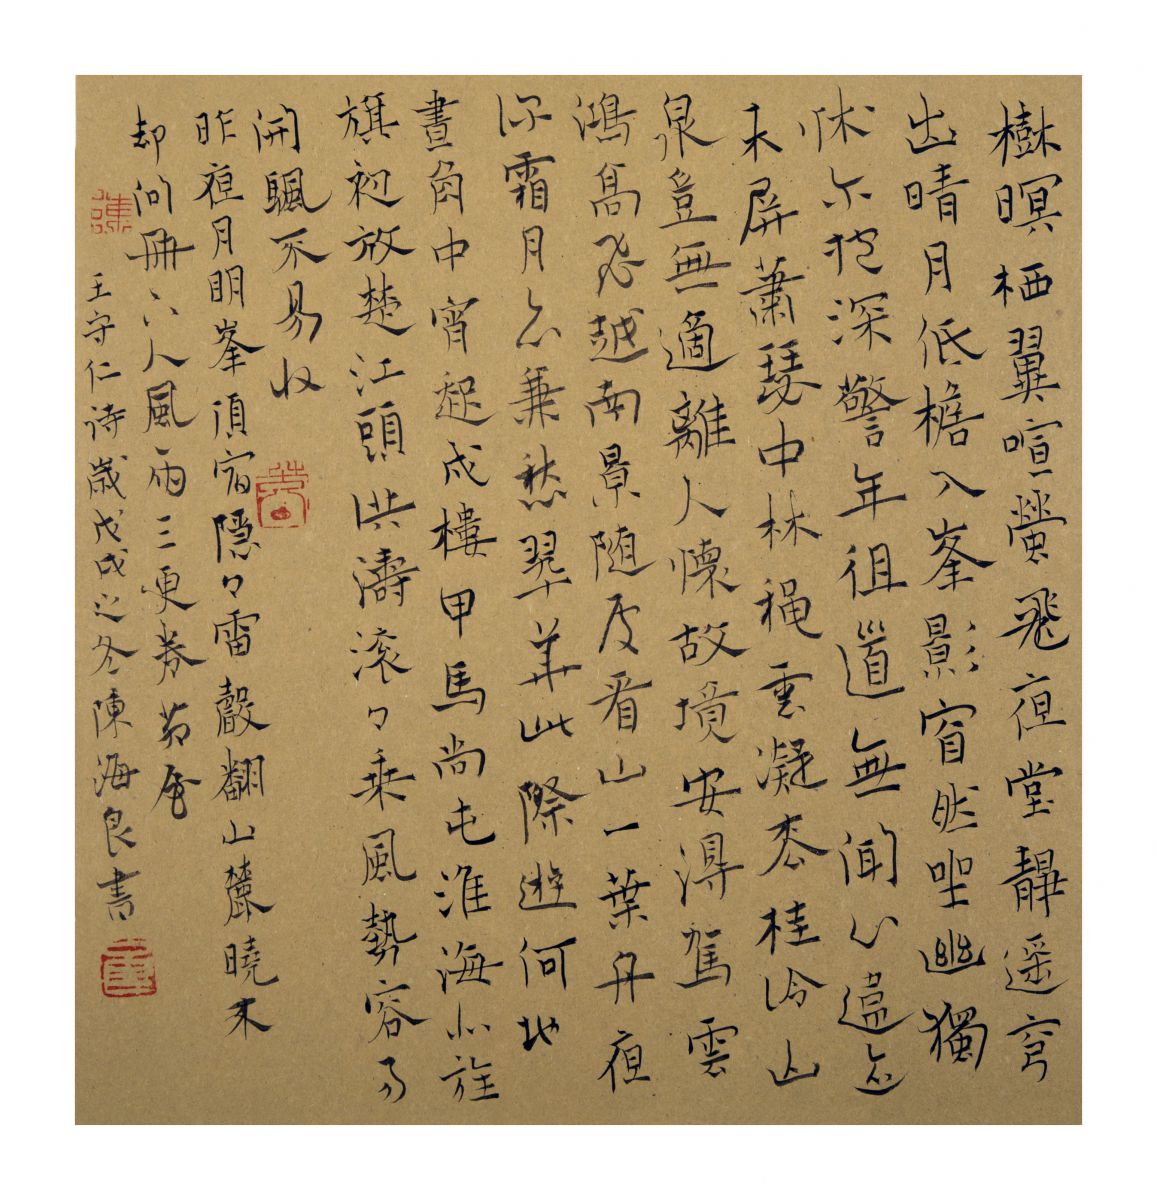 樹暝栖翼喧螢飛夜堂靜遥穹
出晴月低檐入峯影窅然坐幽獨
怵尔抱深警年徂道無聞心違迹
未屏蕭瑟中林穐雲凝枩桂冷山
泉豈無適離人懷故境安得駕雲
鴻高飛越南景随处看山一葉舟夜
深霜月亦兼愁翠華此際遊何地
畫角中宵起戍樓甲馬尚屯淮海北旌
旗初放楚江頭洪濤滚々乘風勢容易
開颿不易收
昨夜月明峯頂宿隱々雷聲翻山麓曉来
却问山下人風雨三更卷茆屋
王守仁诗歲戊戌之冬陳海良書